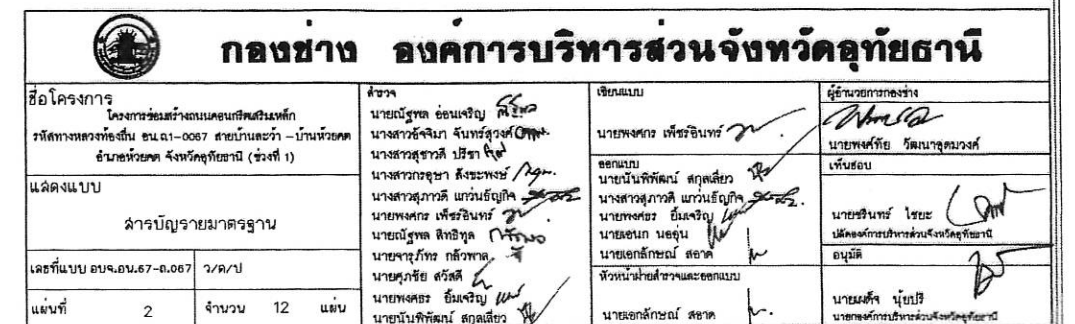 กองช่าง องค์การบริหารส่วนจังหวัดอุทัยธานี
ชื่อโครงการ
โครงการซ่อมสร้างถนนคอนกรีตเสริมเหล็ก
รหัสทางหลวงท้องถิ่น อน.ถ1-0067 สายบ้านละว้า - บ้านห้วยคต
อำเภอห้วยคต จังหวัดอุทัยธานี (ช่วงที่ 1)
แสดงแบบ
สารบัญรายมาตรฐาน
เลขที่แบบ อบจ.อน.67-ถ.067
ว/ด/ป
แผ่นที่ 2
จำนวน 12 แผ่น
สำรวจ
นายณัฐพล อ่อนเจริญ
นางสาวอัจจิมา จันทร์สุวงค์
นางสาวสุชาวดี ปรีชา
นางสาวกรอุษา สังขะพงษ์
นางสาวสุภาวดี แกว่นธัญกิจ
นายพงศกร เพ็ชรอินทร์
นายณัฐพล สิทธิทูล
นายจารุภัทร กล้วพาล
นายศุภชัย สวัสดี
นายพงศธร ยิ้มเจริญ
นายนันพิพัฒน์ สกุลเสี่ยว
เขียนแบบ
นายพงศกร เพ็ชรอินทร์
ออกแบบ
นายนันพิพัฒน์ สกุลเสี่ยว
นางสาวสุภาวดี แกว่นธัญกิจ
นายพงศธร ยิ้มเจริญ
นายเอนก นออุ่น
นายเอกลักษณ์ สอาด
หัวหน้าฝ่ายสำรวจและออกแบบ
นายเอกลักษณ์ สอาด
ผู้อำนวยการกองช่าง
นายพงศ์ทัย วัฒนาอุดมวงค์
เห็นชอบ
นายชรินทร์ ไชยะ
ปลัดองค์การบริหารส่วนจังหวัดอุทัยธานี
อนุมัติ
นายเผด็จ นุ้ยปรี
นายกองค์การบริหารส่วนจังหวัดอุทัยธานี